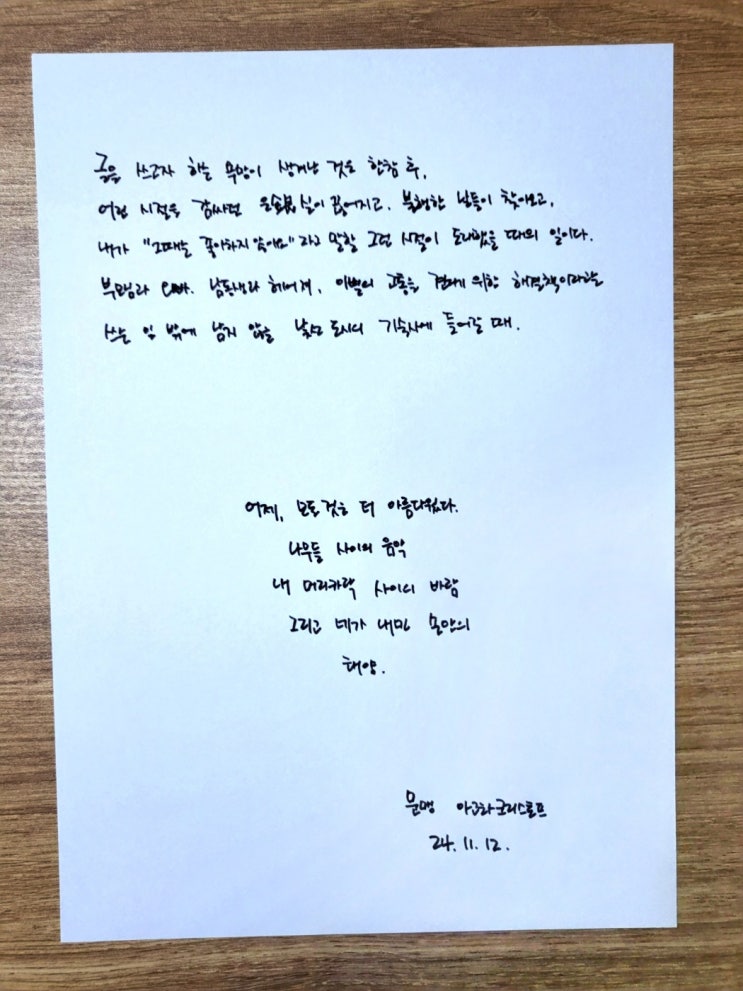 글을 쓰고자 하는 욕망이 생겨난 것은 한참 후,
어린 시절을 감싸던 은銀빛 실이 끊어지고, 불행한 날들이 찾아오고,
내가 "그때는 좋아하지 않아요"라고 말할 그런 시절이 도래했을 때의 일이다.
부모님과 오빠, 남동생과 헤어져, 이별의 고통을 견디기 위한 해결책이라고는
쓰는 일 밖에 남지 않을 낯선 도시의 기숙사에 들어갈 때.
어제, 모든 것은 더 아름다웠다.
나무들 사이의 음악
내 머리카락 사이의 바람
그리고 네가 내민 손안의
태양.
문맹 아고타크리스토프
24.11.12.